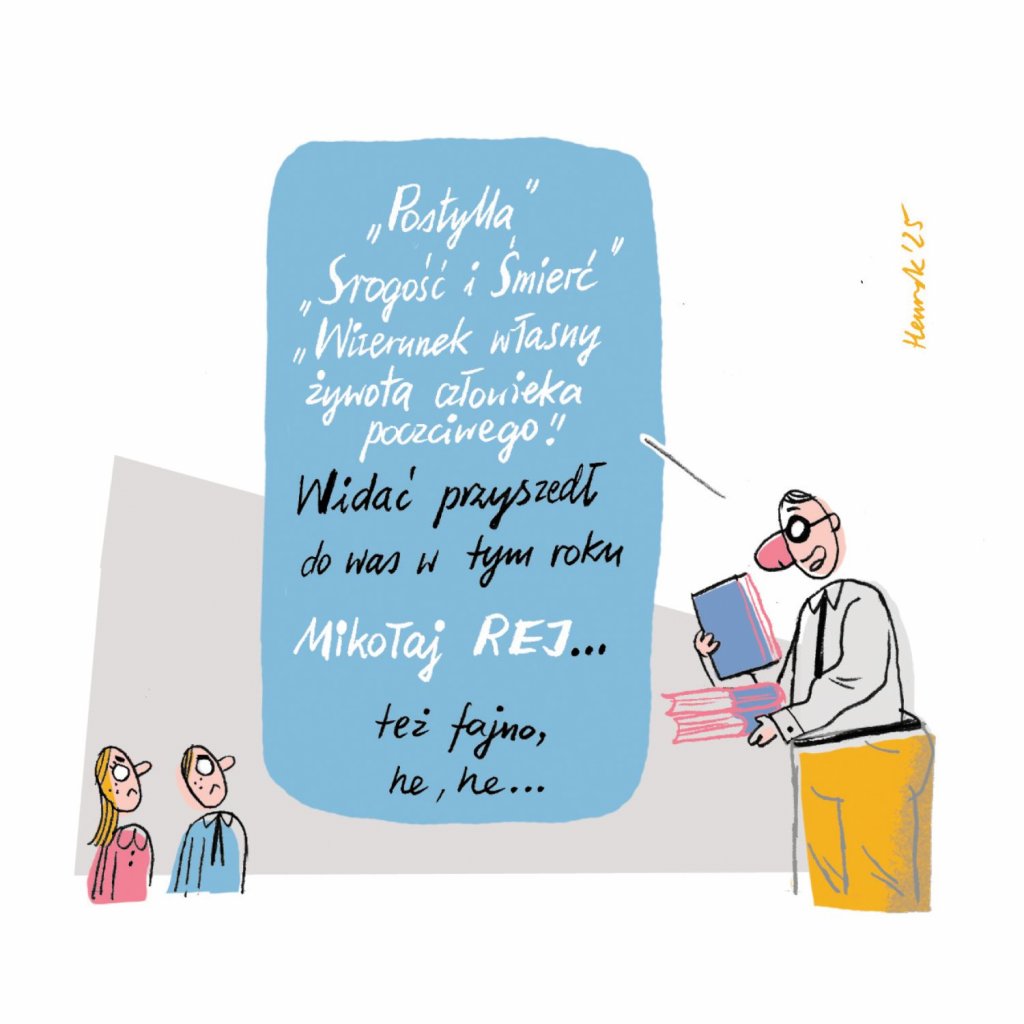 „Postylla”
„Srogość i Śmierć”
„Wizerunek własny
żywota człowieka
poczciwego”.
Widać przyszedł
do was w tym roku
Mikołaj REJ...
też fajno,
he, he...
Henryk '25